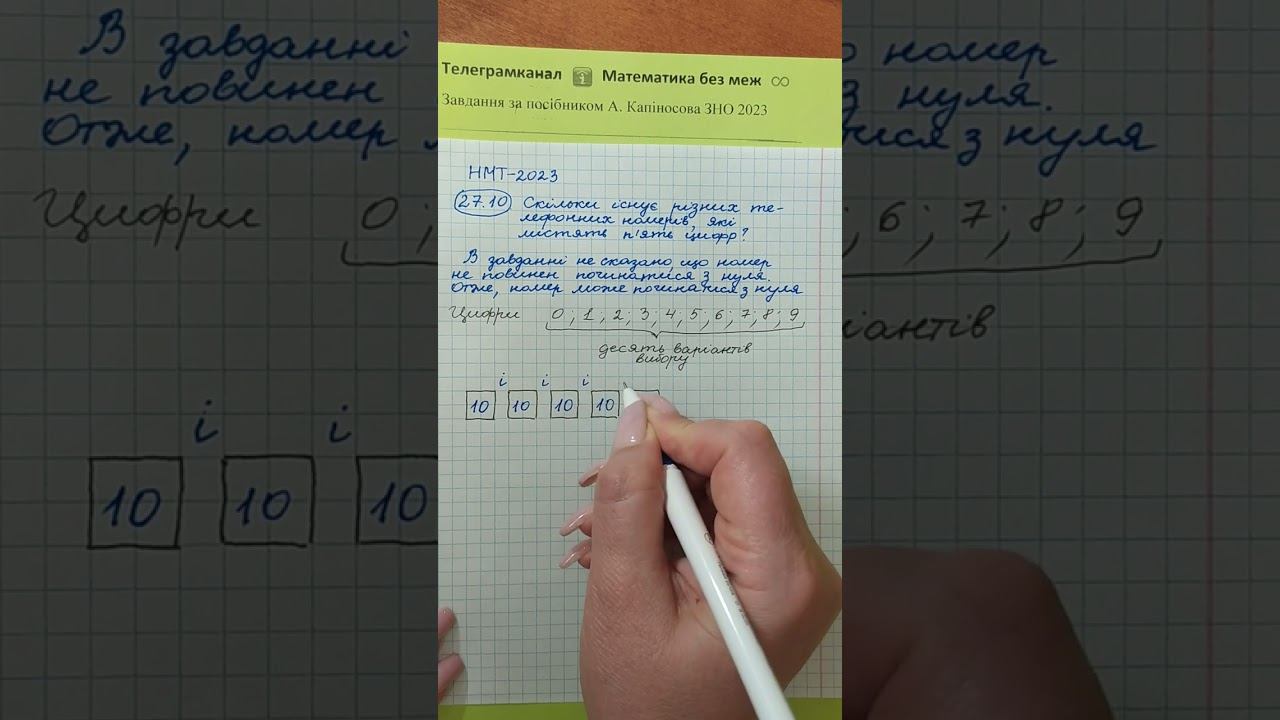 Телеграмканал Математика без меж
Завдання за посібником А. Капіносова ЗНО 2023
НМТ-2023
27.10 Скільки існує різних те-
лефонних номерів, які
містять п'ять цифр?
В завданні не сказано що номер
не повинен починатися з нуля.
Отже, номер може починатися з нуля
Цифри 0; 1; 2; 3; 4; 5; 6; 7; 8; 9
десять варіантів
вибору
і і і
10 10 10 10